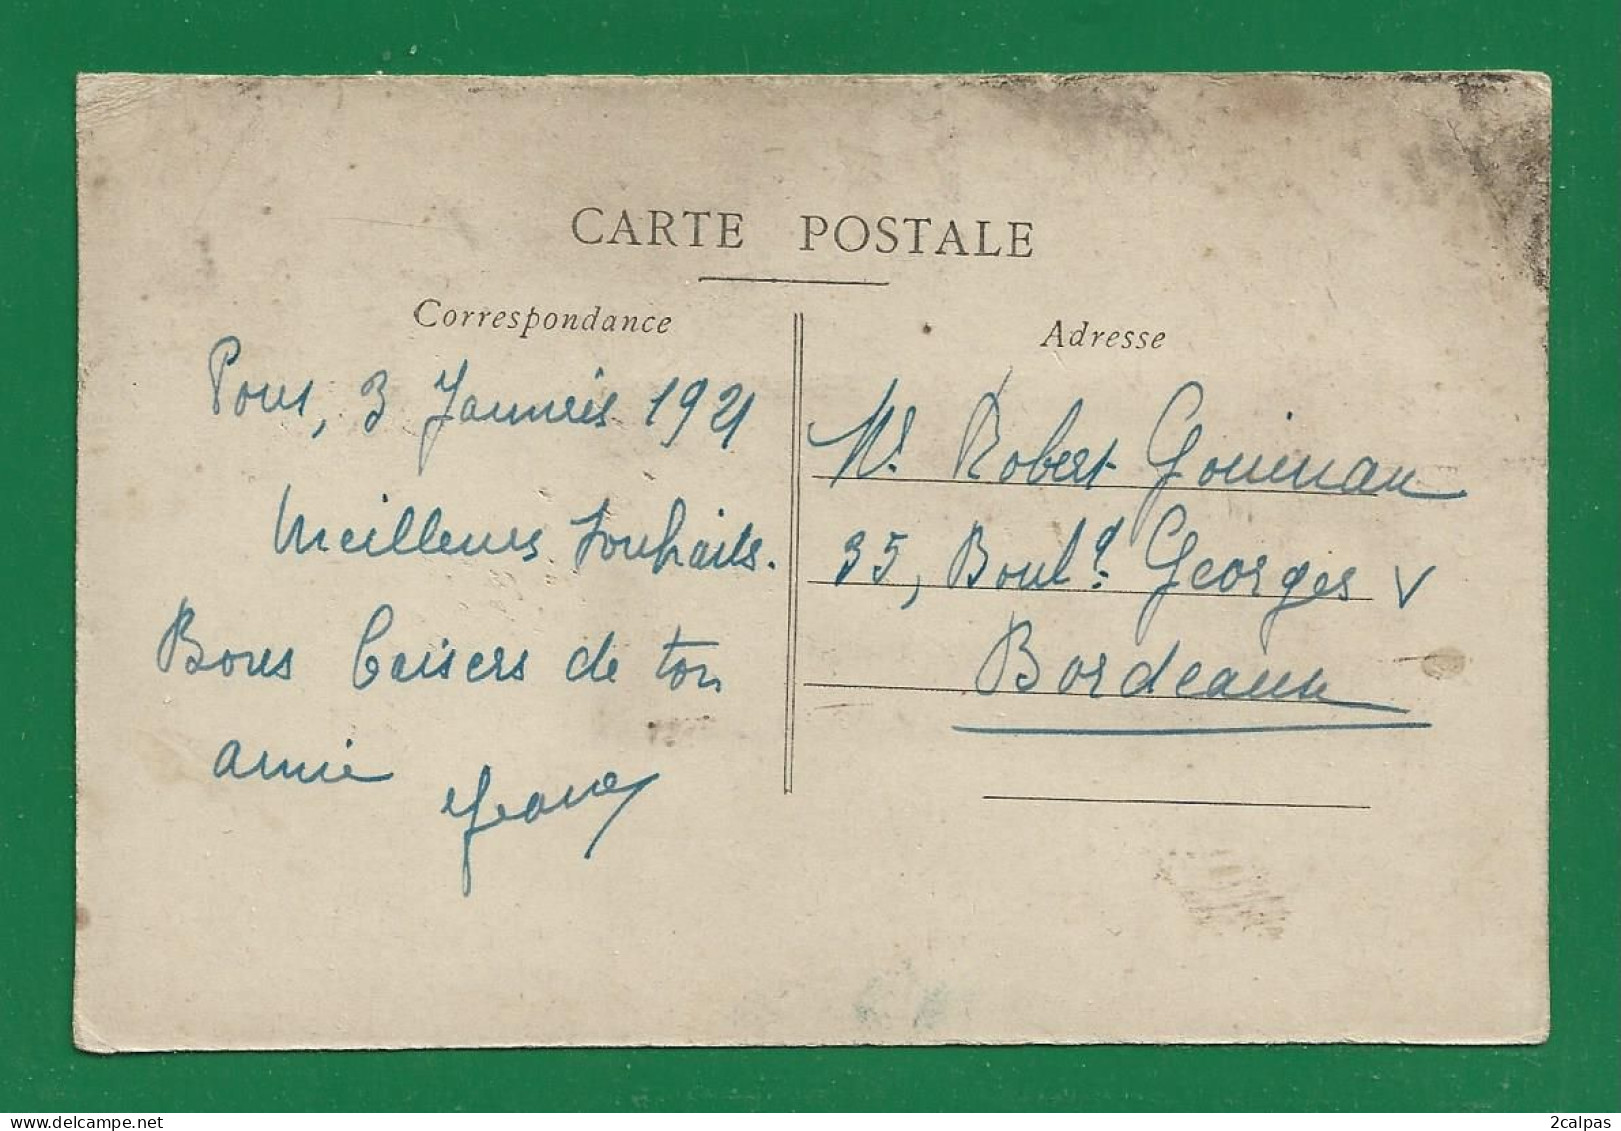 CARTE POSTALE
Correspondance
Pons, 3 Janvier 1921
Meilleurs Souhaits.
Bons baisers de ton
amie
Adresse
Mr. Robert
35, Boul.d Georges V
Bordeaux
2calpas